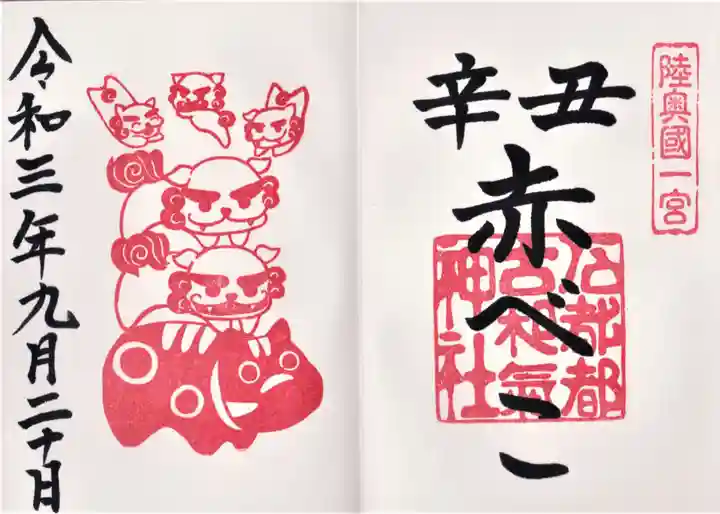 陸奥國一宮
辛丑
赤べこ
石都都古和氣神社
令和三年九月二十日